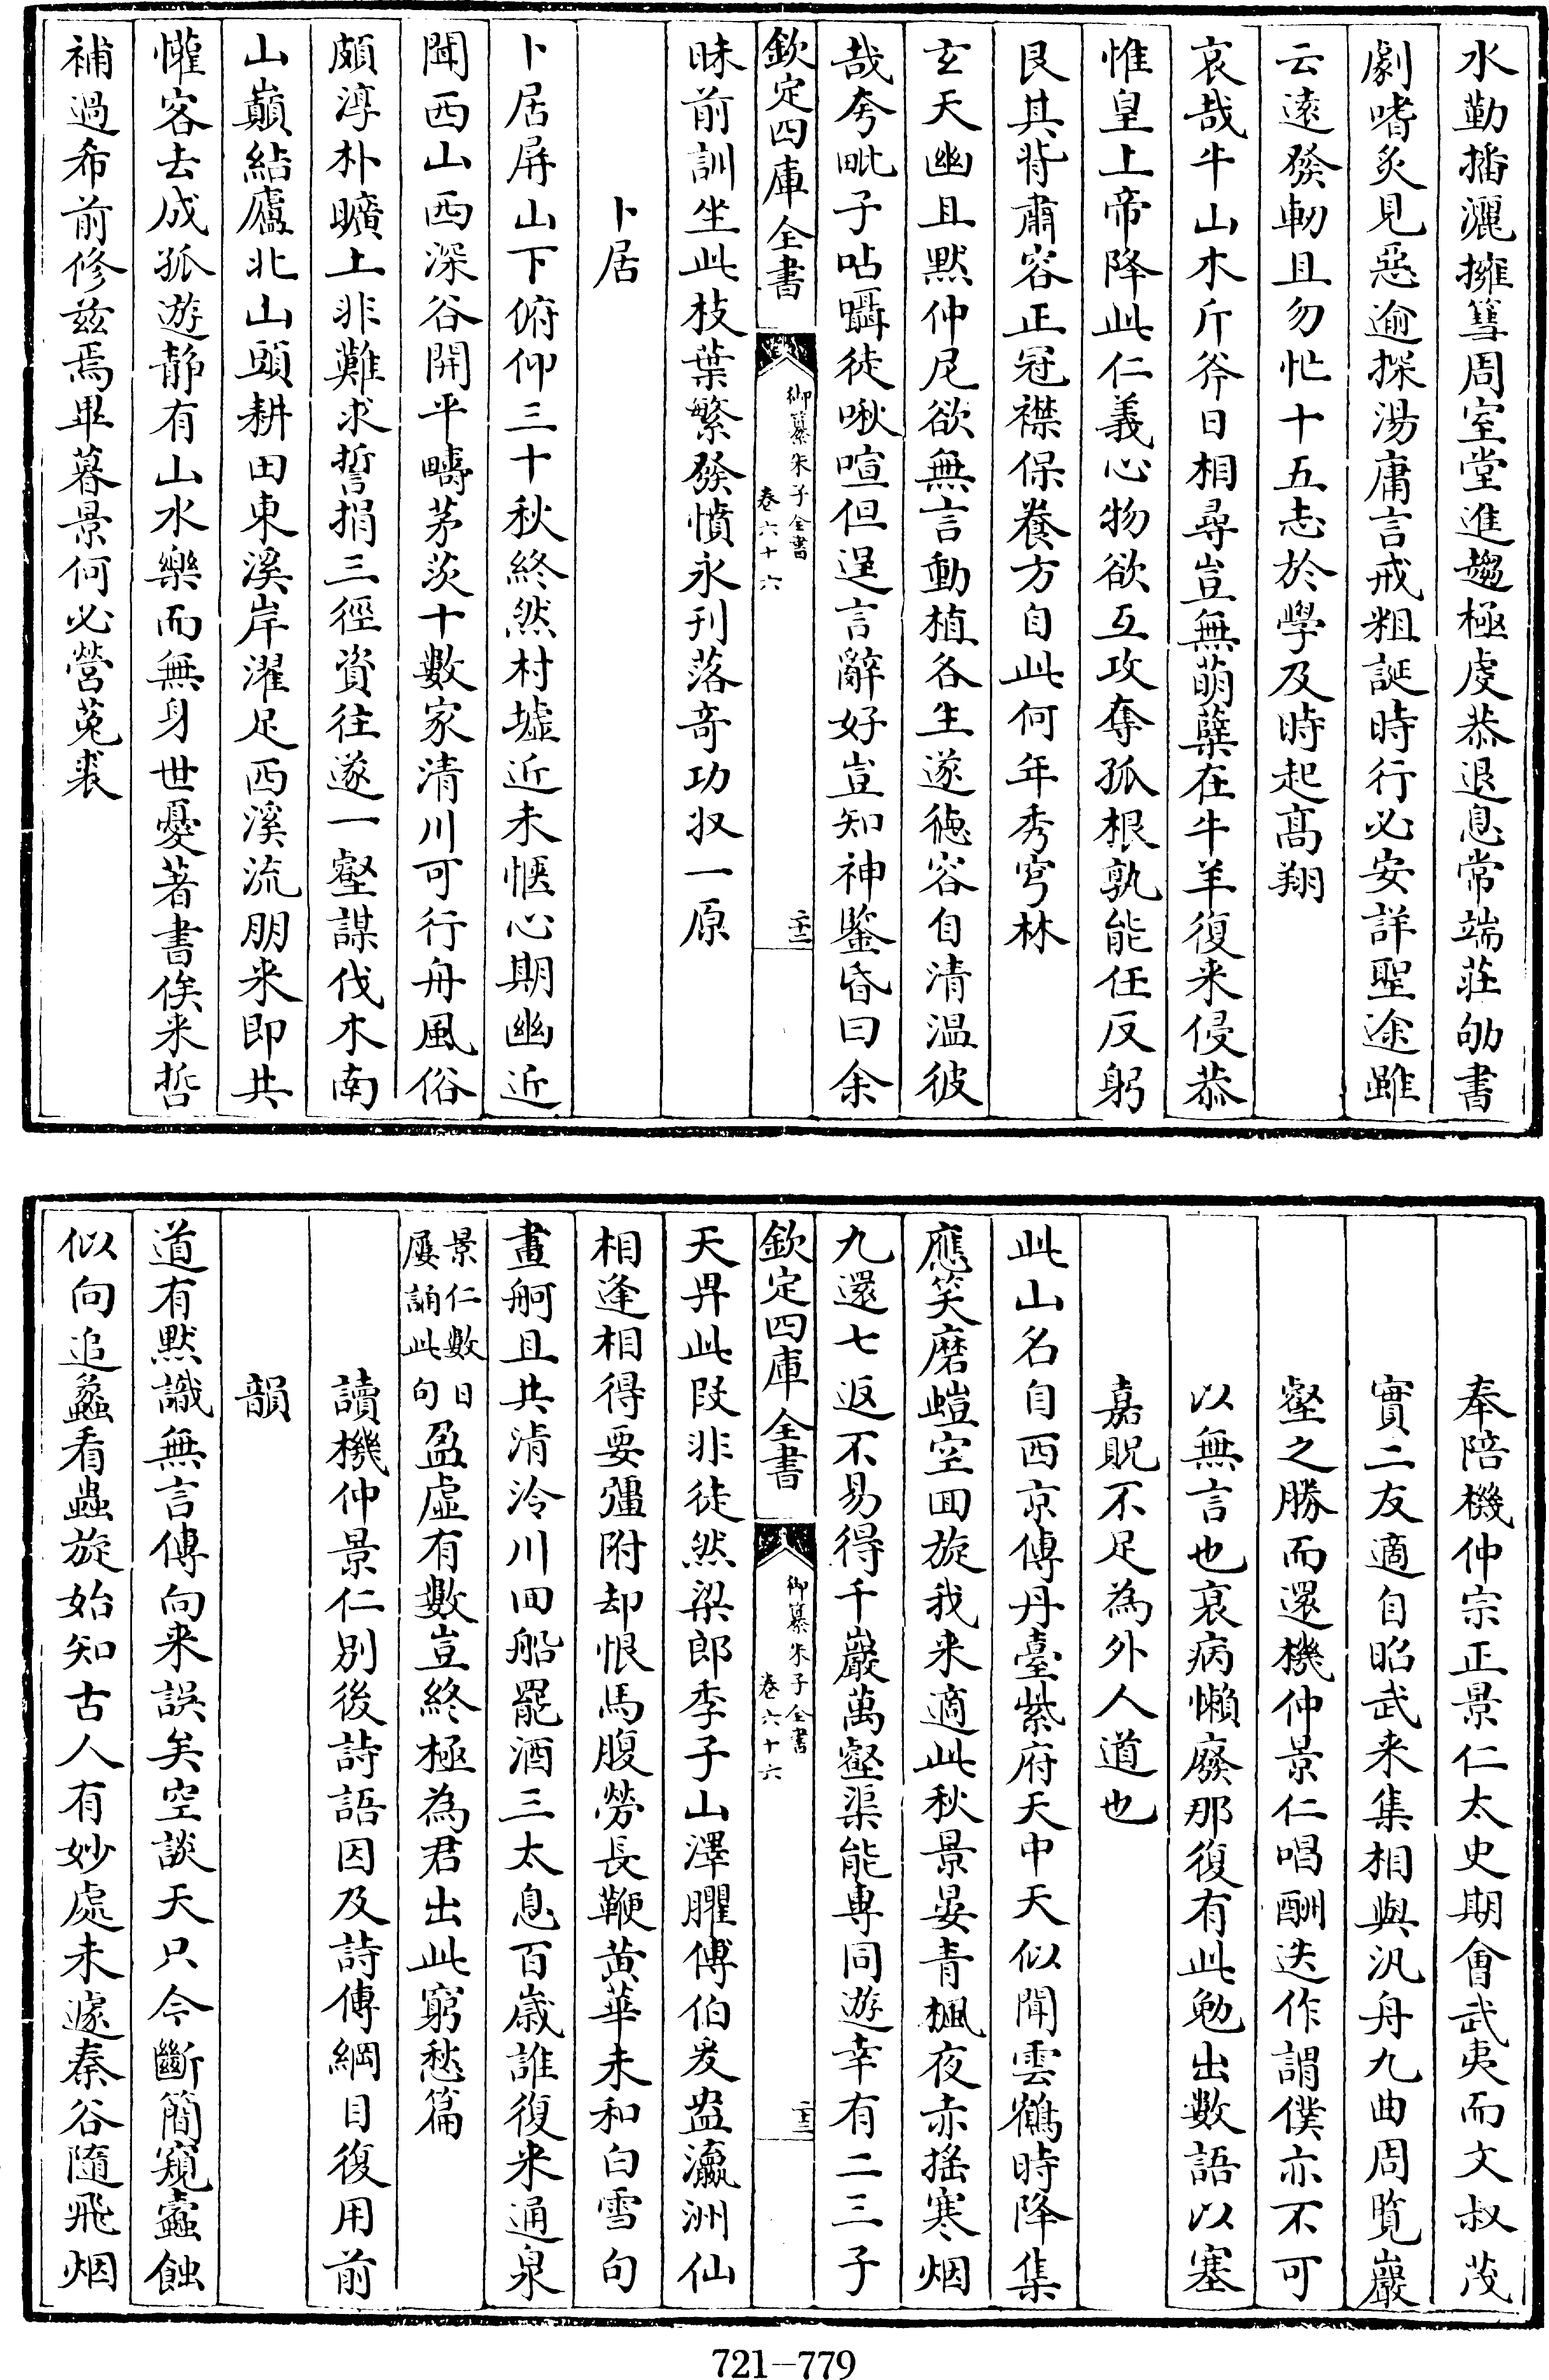 水勤播灑擁篲周室堂進趨極虔恭退息常端莊劬書
劇嗜炙見惡逾探湯庸言戒粗誕時行必安詳聖途雖
云遠發軔且勿忙十五志於學及時起髙翔
哀哉牛山木斤斧日相尋豈無萌蘖在牛羊復来侵恭
惟皇上帝降此仁義心物欲互攻奪孤根孰能任反躬
艮其背肅容正冠襟保養方自此何年秀穹林
玄天幽且黙仲尼欲無言動植各生遂徳容自清温彼
哉夸毗子呫囁徒啾喧但逞言辭好豈知神鑒昏曰余
欽定四庫全書
御纂朱子全書
卷六十六
二十二
昧前訓坐此枝葉繁發憤永刋落竒功収一原
卜居
卜居屏山下俯仰三十秋終然村墟近未愜心期幽近
聞西山西深谷開平疇茅茨十數家清川可行舟風俗
頗淳朴曠土非難求誓捐三徑資往遂一壑謀伐木南
山巔結廬北山頭耕田東溪岸濯足西溪流朋来即共
懽客去成孤遊静有山水樂而無身世憂著書俟来哲
補過希前修兹焉畢暮景何必營菟裘
奉陪機仲宗正景仁太史期會武夷而文叔茂
實二友適自昭武来集相與汎舟九曲周覽巖
壑之勝而還機仲景仁唱酬迭作謂僕亦不可
以無言也衰病懶廢那復有此勉出數語以塞
嘉貺不足為外人道也
此山名自西京傳丹臺紫府天中天似聞雲鶴時降集
應笑磨螘空囬旋我来適此秋景晏青楓夜赤摇寒烟
九還七返不易得千巖萬壑渠能專同遊幸有二三子
欽定四庫全書
御纂朱子全書
卷六十六
二十三
天畀此段非徒然梁郎季子山澤臞傅伯爰盎瀛洲仙
相逢相得要彊附却恨馬腹勞長鞭黄華未和白雪句
畫舸且共清泠川囬船罷酒三太息百歳誰復来通泉
景仁數日
屢誦此句
盈虚有數豈終極為君出此窮愁篇
讀機仲景仁别後詩語因及詩傳綱目復用前
韻
道有黙識無言傳向来誤矣空談天只今斷簡窺蠧蝕
似向追蠡看蟲旋始知古人有妙處未遽秦谷隨飛烟
721-779